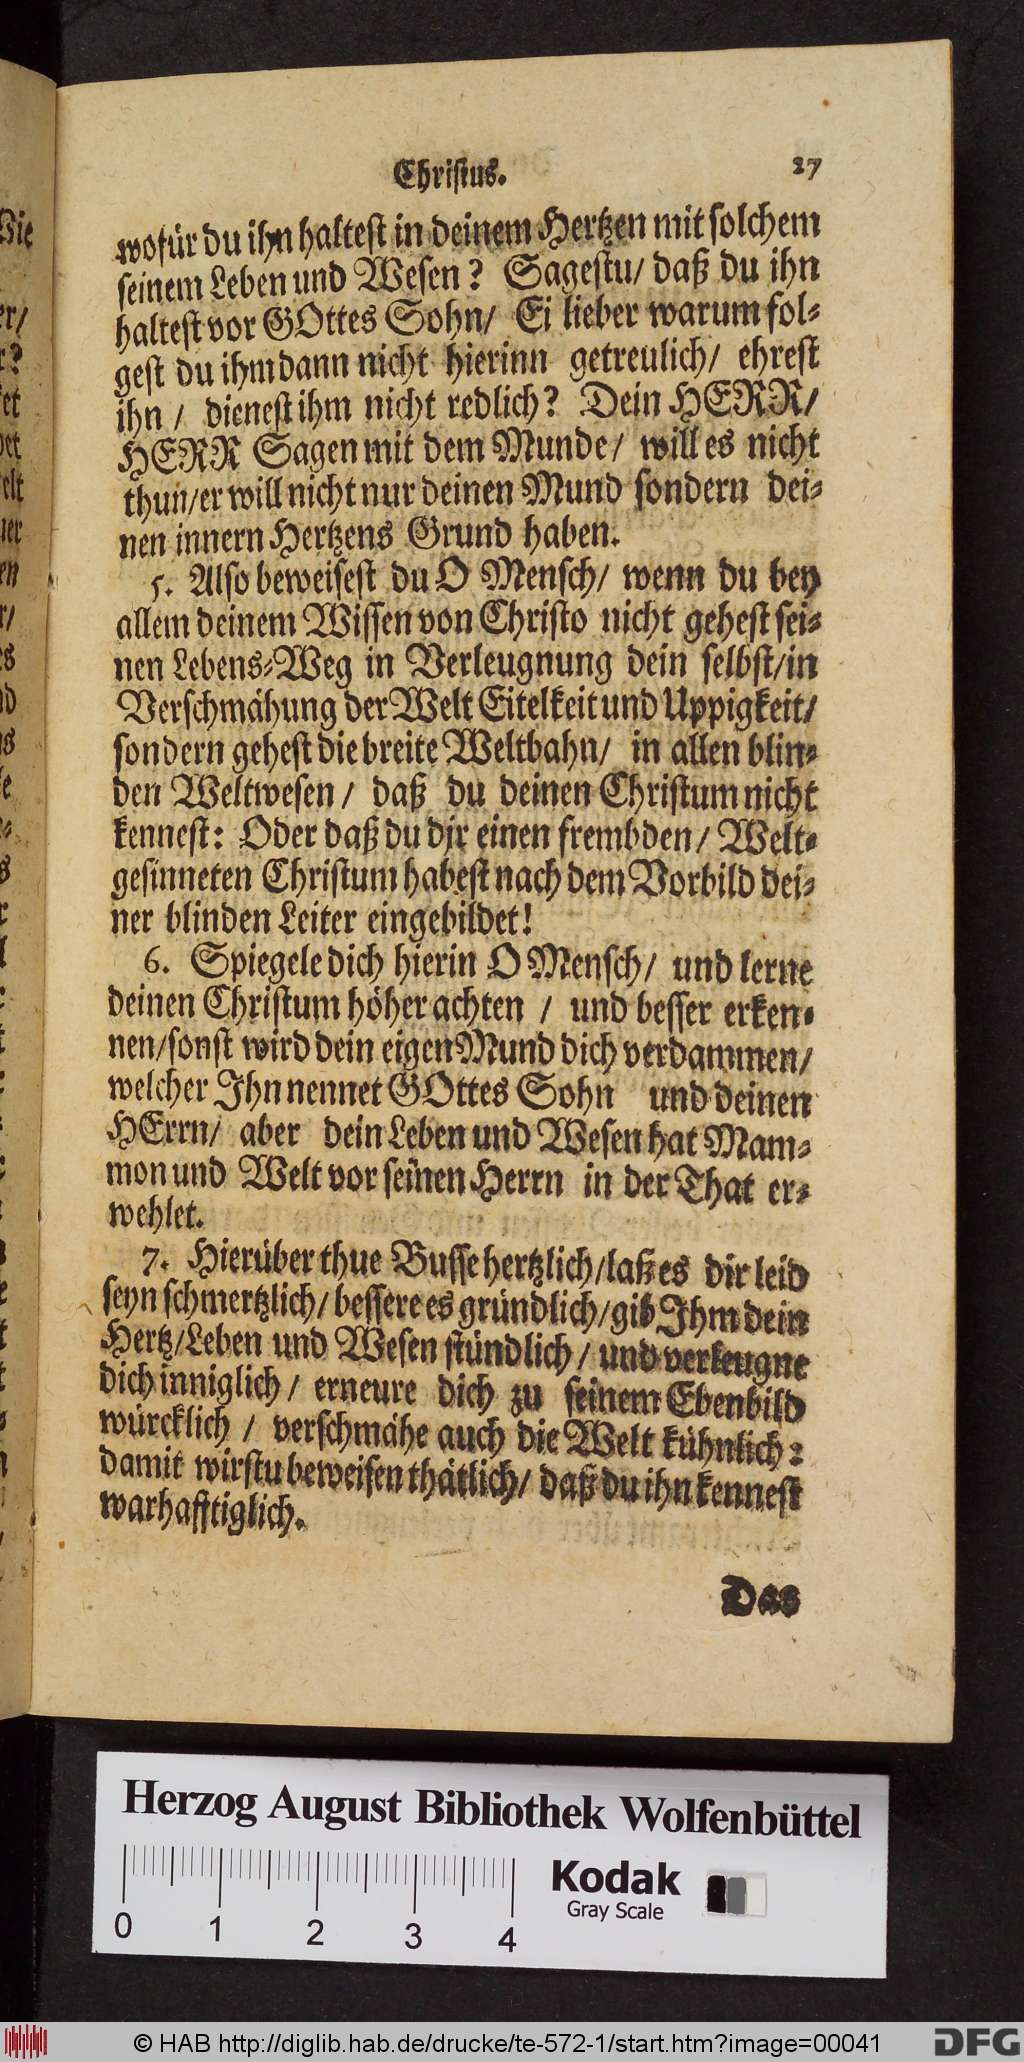 Christus. 27
wofür du ihn haltest in deinem Hertzen mit solchem
seinem Leben und Wesen? Sagestu/ daß du ihn
haltest vor GOttes Sohn/ Ei lieber warum fol-
gest du ihm dann nicht hierinn getreulich/ ehrest
ihn / dienest ihm nicht redlich? Dein HERR/
HERR Sagen mit dem Munde/ will es nicht
thun/er will nicht nur deinen Mund sondern dei-
nen innern Hertzens Grund haben.
5. Also beweisest du O Mensch/ wenn du bey
allem deinem Wissen von Christo nicht gehest sei-
nen Lebens-Weg in Verleugnung dein selbst/in
Verschmähung der Welt Eitelkeit und Uppigkeit/
sondern gehest die breite Weltbahn/ in allen blin-
den Weltwesen/ daß du deinen Christum nicht
kennest: Oder daß du dir einen frembden/ Welt-
gesinneten Christum habest nach dem Vorbild dei-
ner blinden Leiter eingebildet!
6. Spiegele dich hierin O Mensch/ und lerne
deinen Christum höher achten / und besser erken-
nen/sonst wird dein eigen Mund dich verdammen/
welcher Ihn nennet GOttes Sohn und deinen
HErrn/ aber dein Leben und Wesen hat Mam-
mon und Welt vor seinen Herrn in der That er-
wehlet.
7. Hierüber thue Busse hertzlich/laß es dir leid
seyn schmertzlich/ bessere es gründlich/gib Ihm dein
Hertz/Leben und Wesen stündlich/ und verleugne
dich inniglich/ erneure dich zu seinem Ebenbild
würcklich / verschmähe auch die Welt kühnlich:
damit wirstu beweisen thätlich/ daß du ihn kennest
warhafftiglich.
Das
Herzog August Bibliothek Wolfenbüttel
Kodak
Gray Scale
0 1 2 3 4
© HAB http://diglib.hab.de/drucke/te-572-1/start.htm?image=00041
DFG